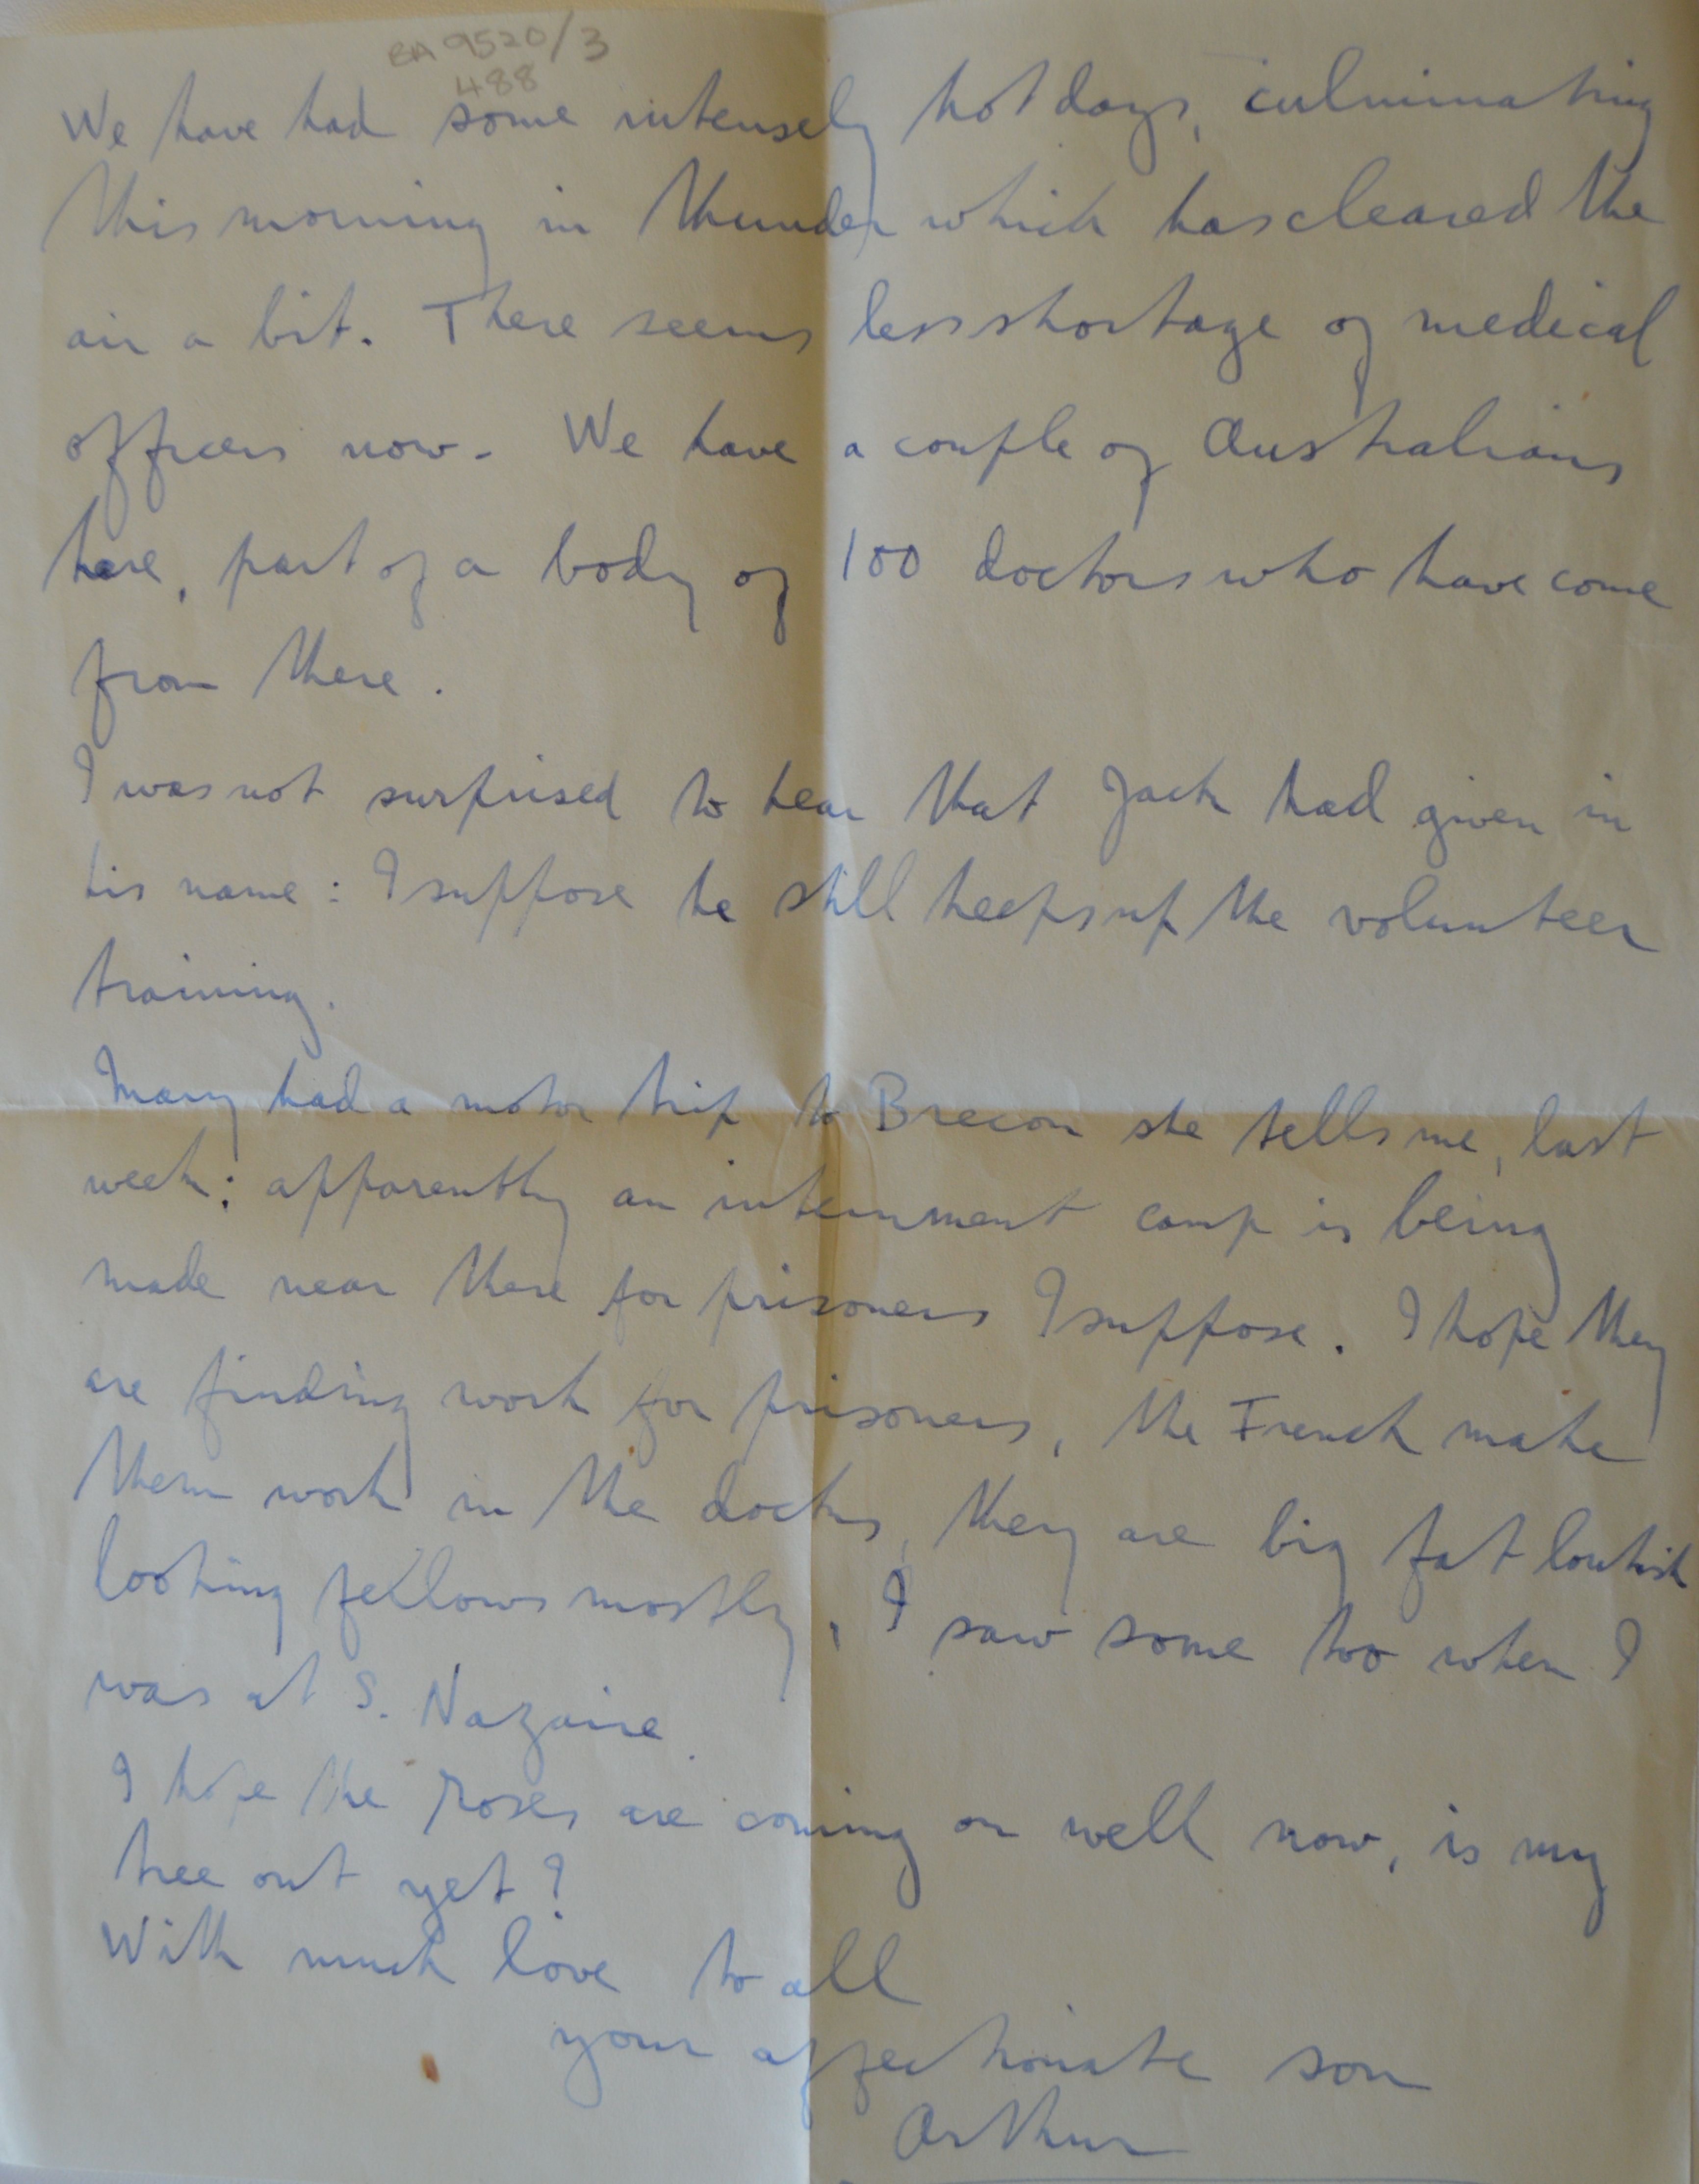 BA 9520/3
488
We have had some intensely hot days, culminating
this morning in thunder which has cleared the
air a bit. There seems less shortage of medical
officers now. We have a couple of Australians
here, part of a body of 100 doctors who have come
from there.
I was not surprised to hear that Jack had given in
his name: I suppose he still keeps up the volunteer
training.
Mary had a motor trip to Brecon she tells me, last
week; apparently an internment camp is being
made near there for prisoners I suppose. I hope they
are finding work for prisoners, the French make
them work in the docks, they are big fat loutish
looking fellows mostly, I saw some too when I
was at S. Nazaire.
I hope the roses are coming on well now, is my
tree out yet?
With much love to all
your affectionate son
Arthur